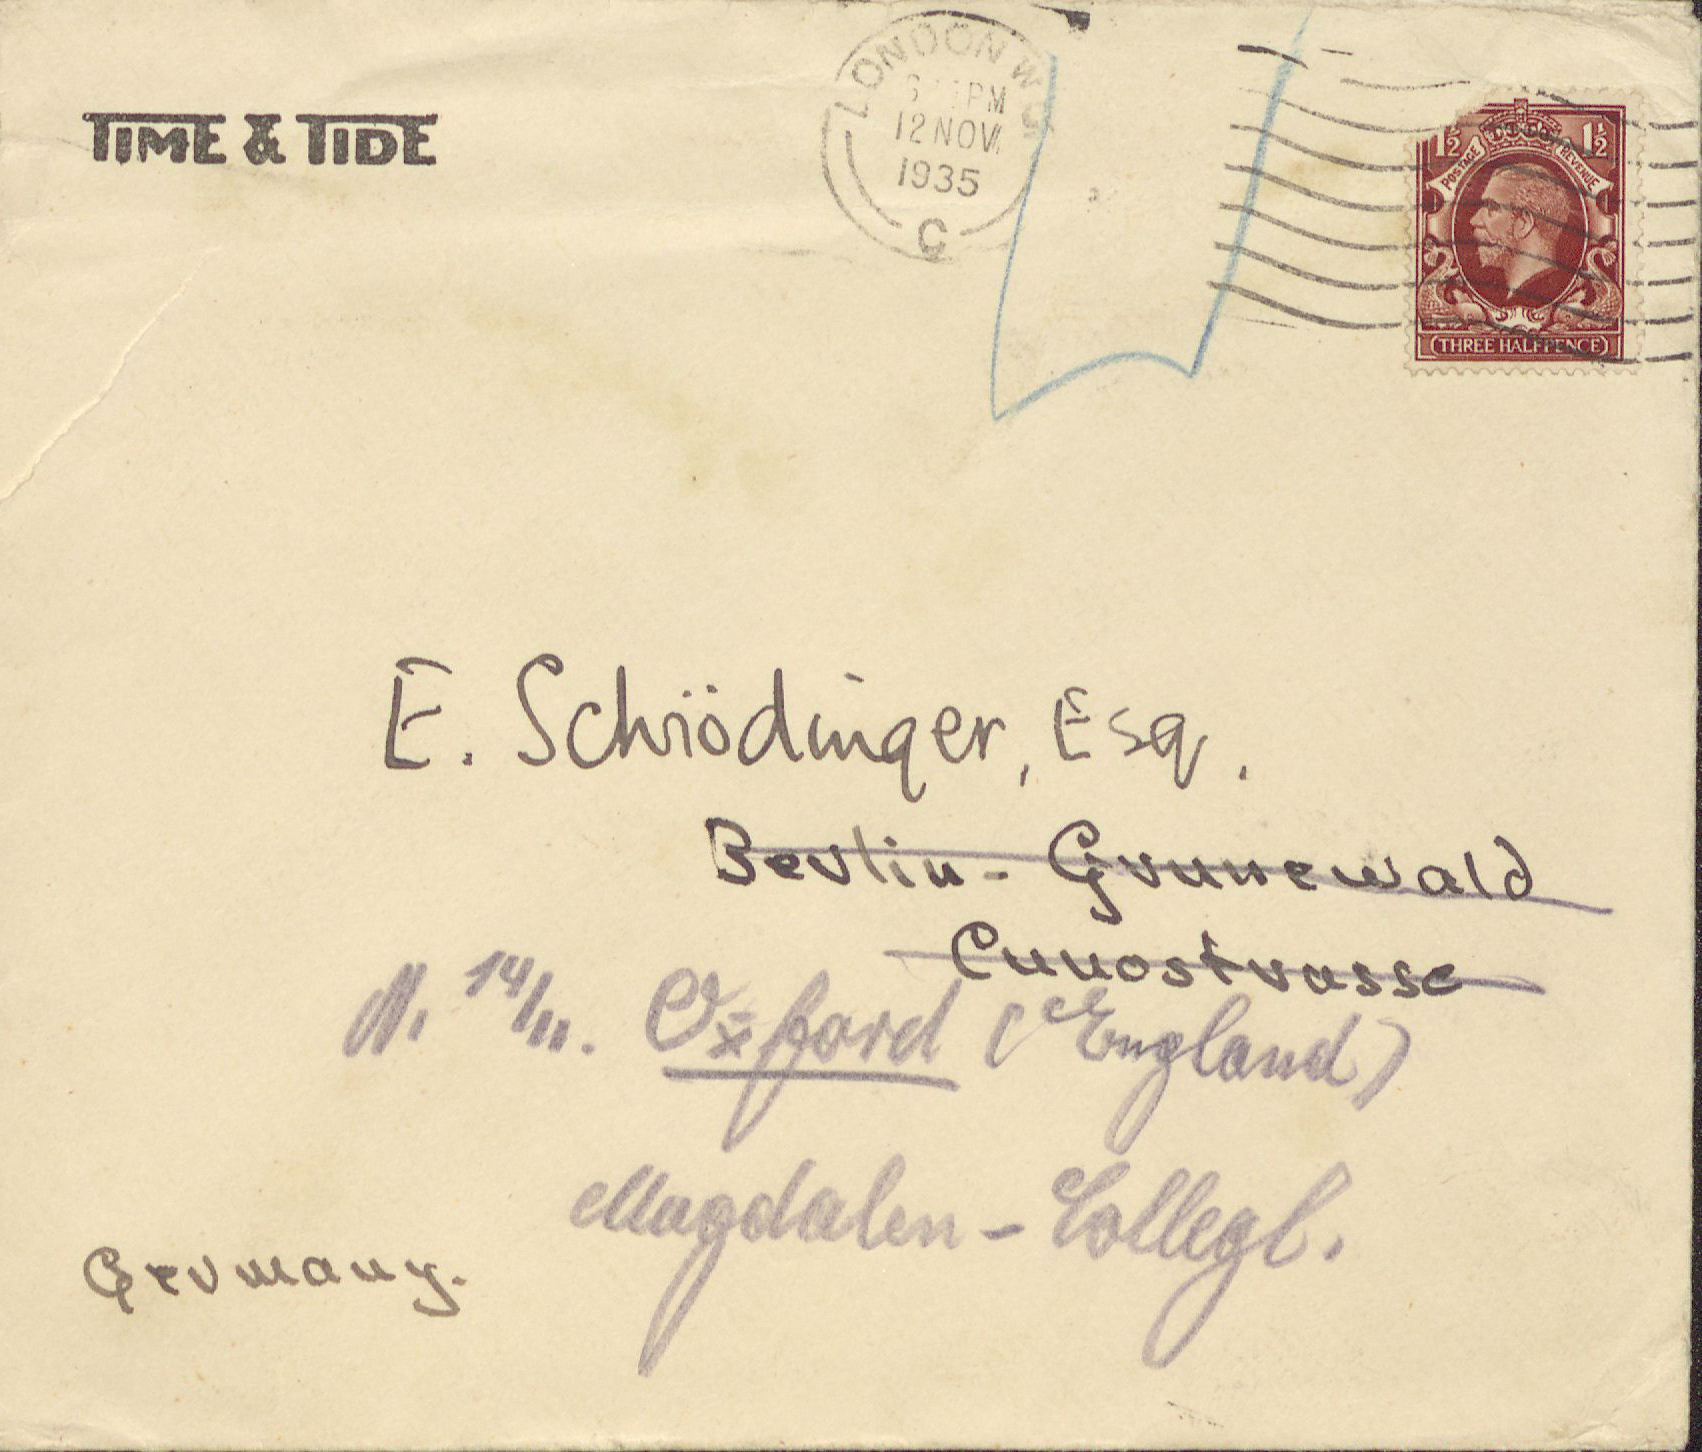 TIME & TIDE
LONDON W
PM
12 NOV
1935
C
1½ 1½
POSTAGE REVENUE
(THREE HALFPENCE)
E. Schrödinger, Esq.
Berlin-Grunewald
Cunostrasse
14/11. Oxford (England)
Magdalen-Colleg
Germany.